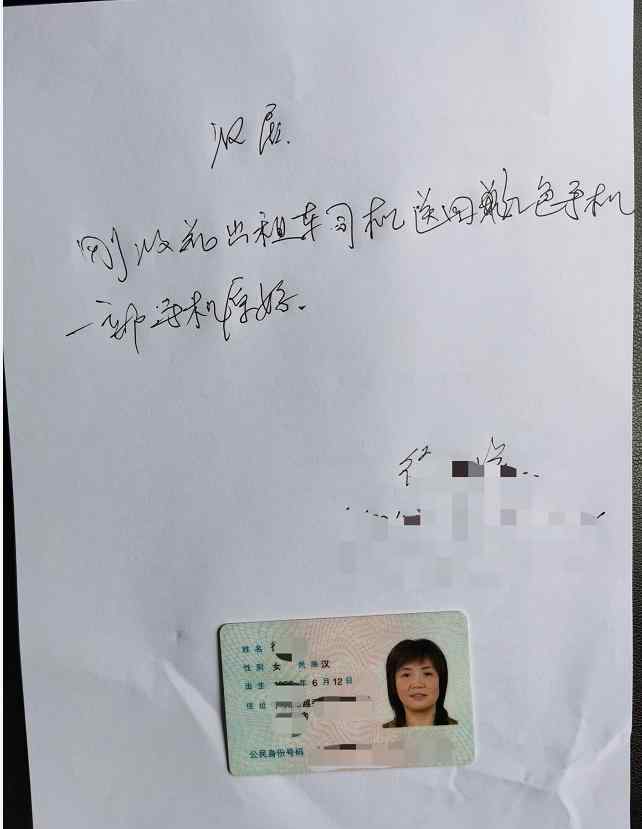 收居.
刚收到出租车司机送回紫色手机
一部手机完好.
徐
姓名
性别 女 民族 汉
出生 年 6 月 12 日
住址
公民身份号码